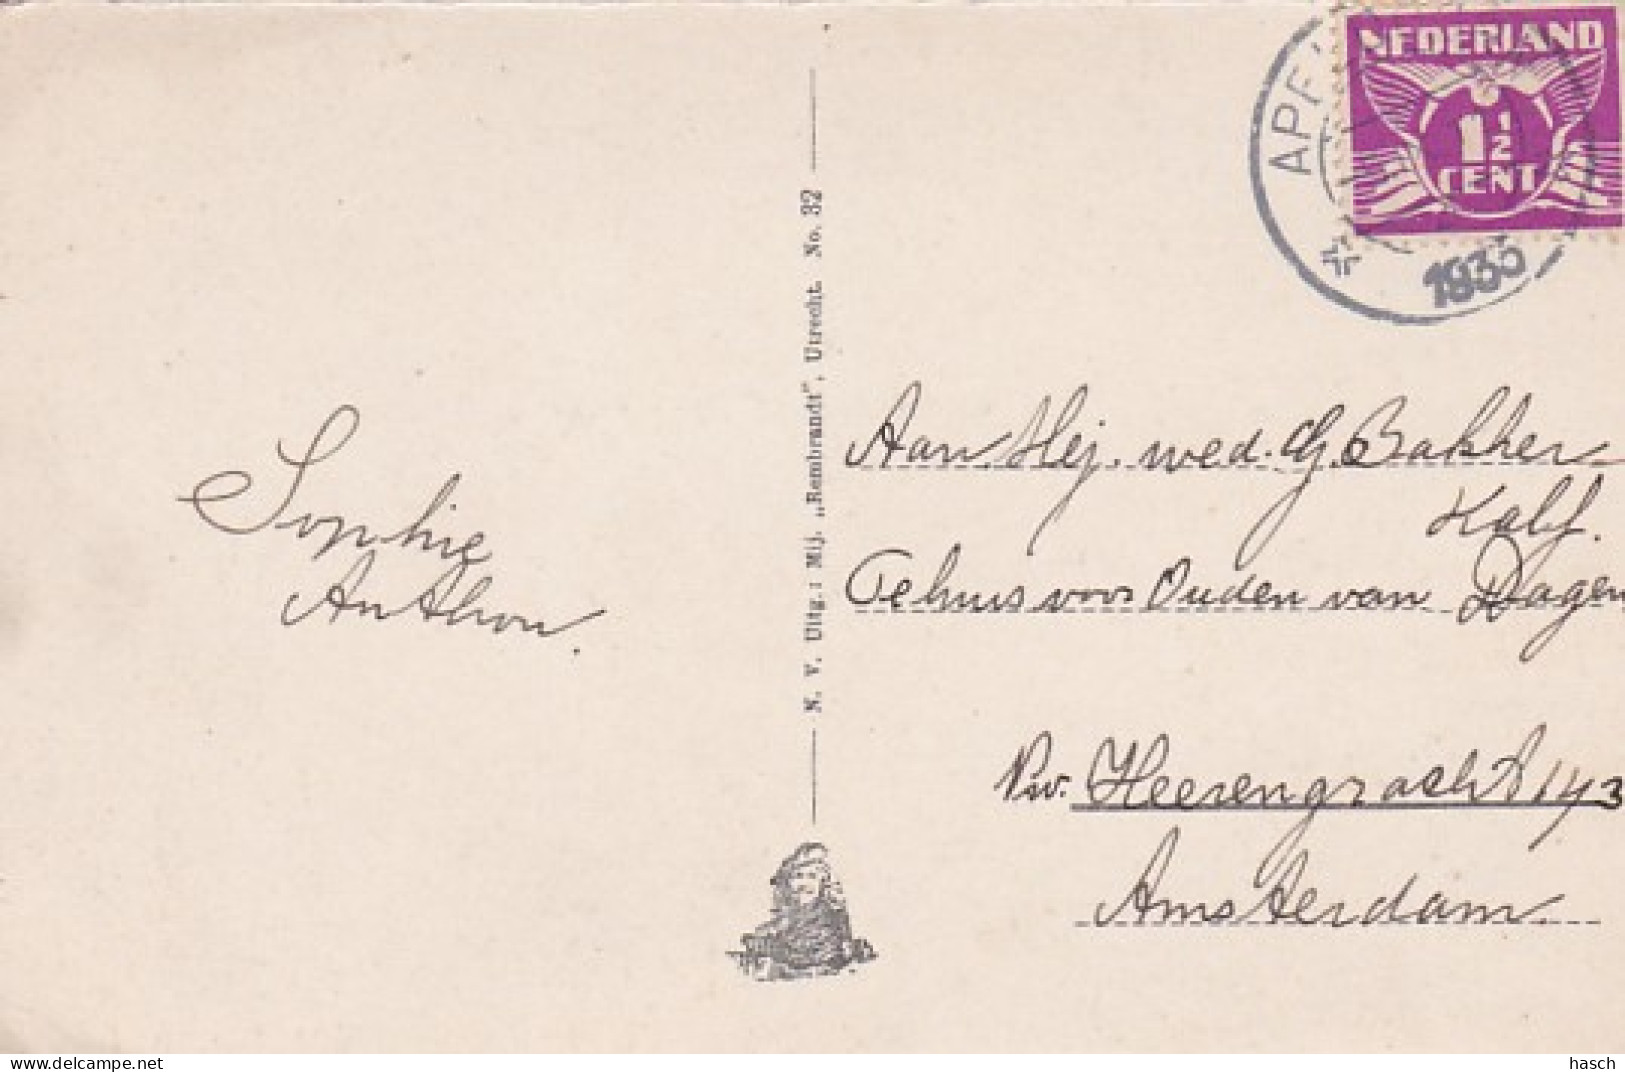 NEDERLAND
1½
CENT
1935
N. V. Uitg.: Mij. „Rembrandt”, Utrecht. No. 32
Sophie
Anthon.
Aan Mej. wed. G. Bakker
Kalf.
Tehuis voor Ouden van Dagen
Nw. Heerengracht 143
Amsterdam.
hasch